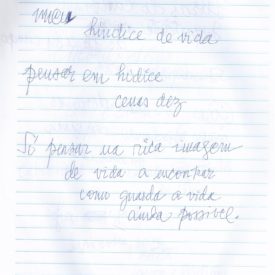 meu
híndice de vida
pensar em hídice
cenas dez
Só pensar na rica imagem
de vida a encontrar
como guarda a vida
ainda possível.